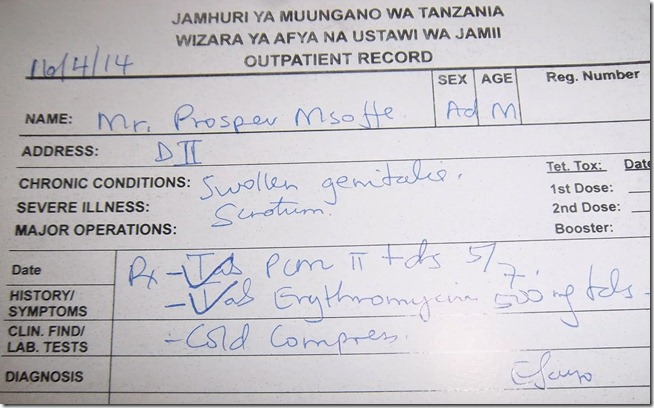 JAMHURI YA MUUNGANO WA TANZANIA
WIZARA YA AFYA NA USTAWI WA JAMII
OUTPATIENT RECORD
16/4/14
SEX AGE Reg. Number
NAME: Mr. Prosper Msoffe Ad M
ADDRESS: D II
CHRONIC CONDITIONS: Swollen genitalie.
Tet. Tox: Date
SEVERE ILLNESS: Scrotum.
1st Dose:
2nd Dose:
MAJOR OPERATIONS:
Booster:
Date Rx - Tab PCM II tds 5/7.
HISTORY/
SYMPTOMS - Tab Erythromycin 500 mg tds -
CLIN. FIND/
LAB. TESTS - Cold Compress.
DIAGNOSIS